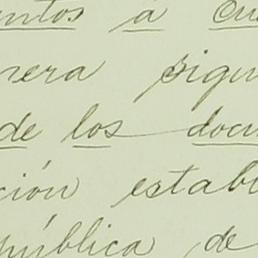 entos a cu
nera sigui
de los docu
ción establ
pública de